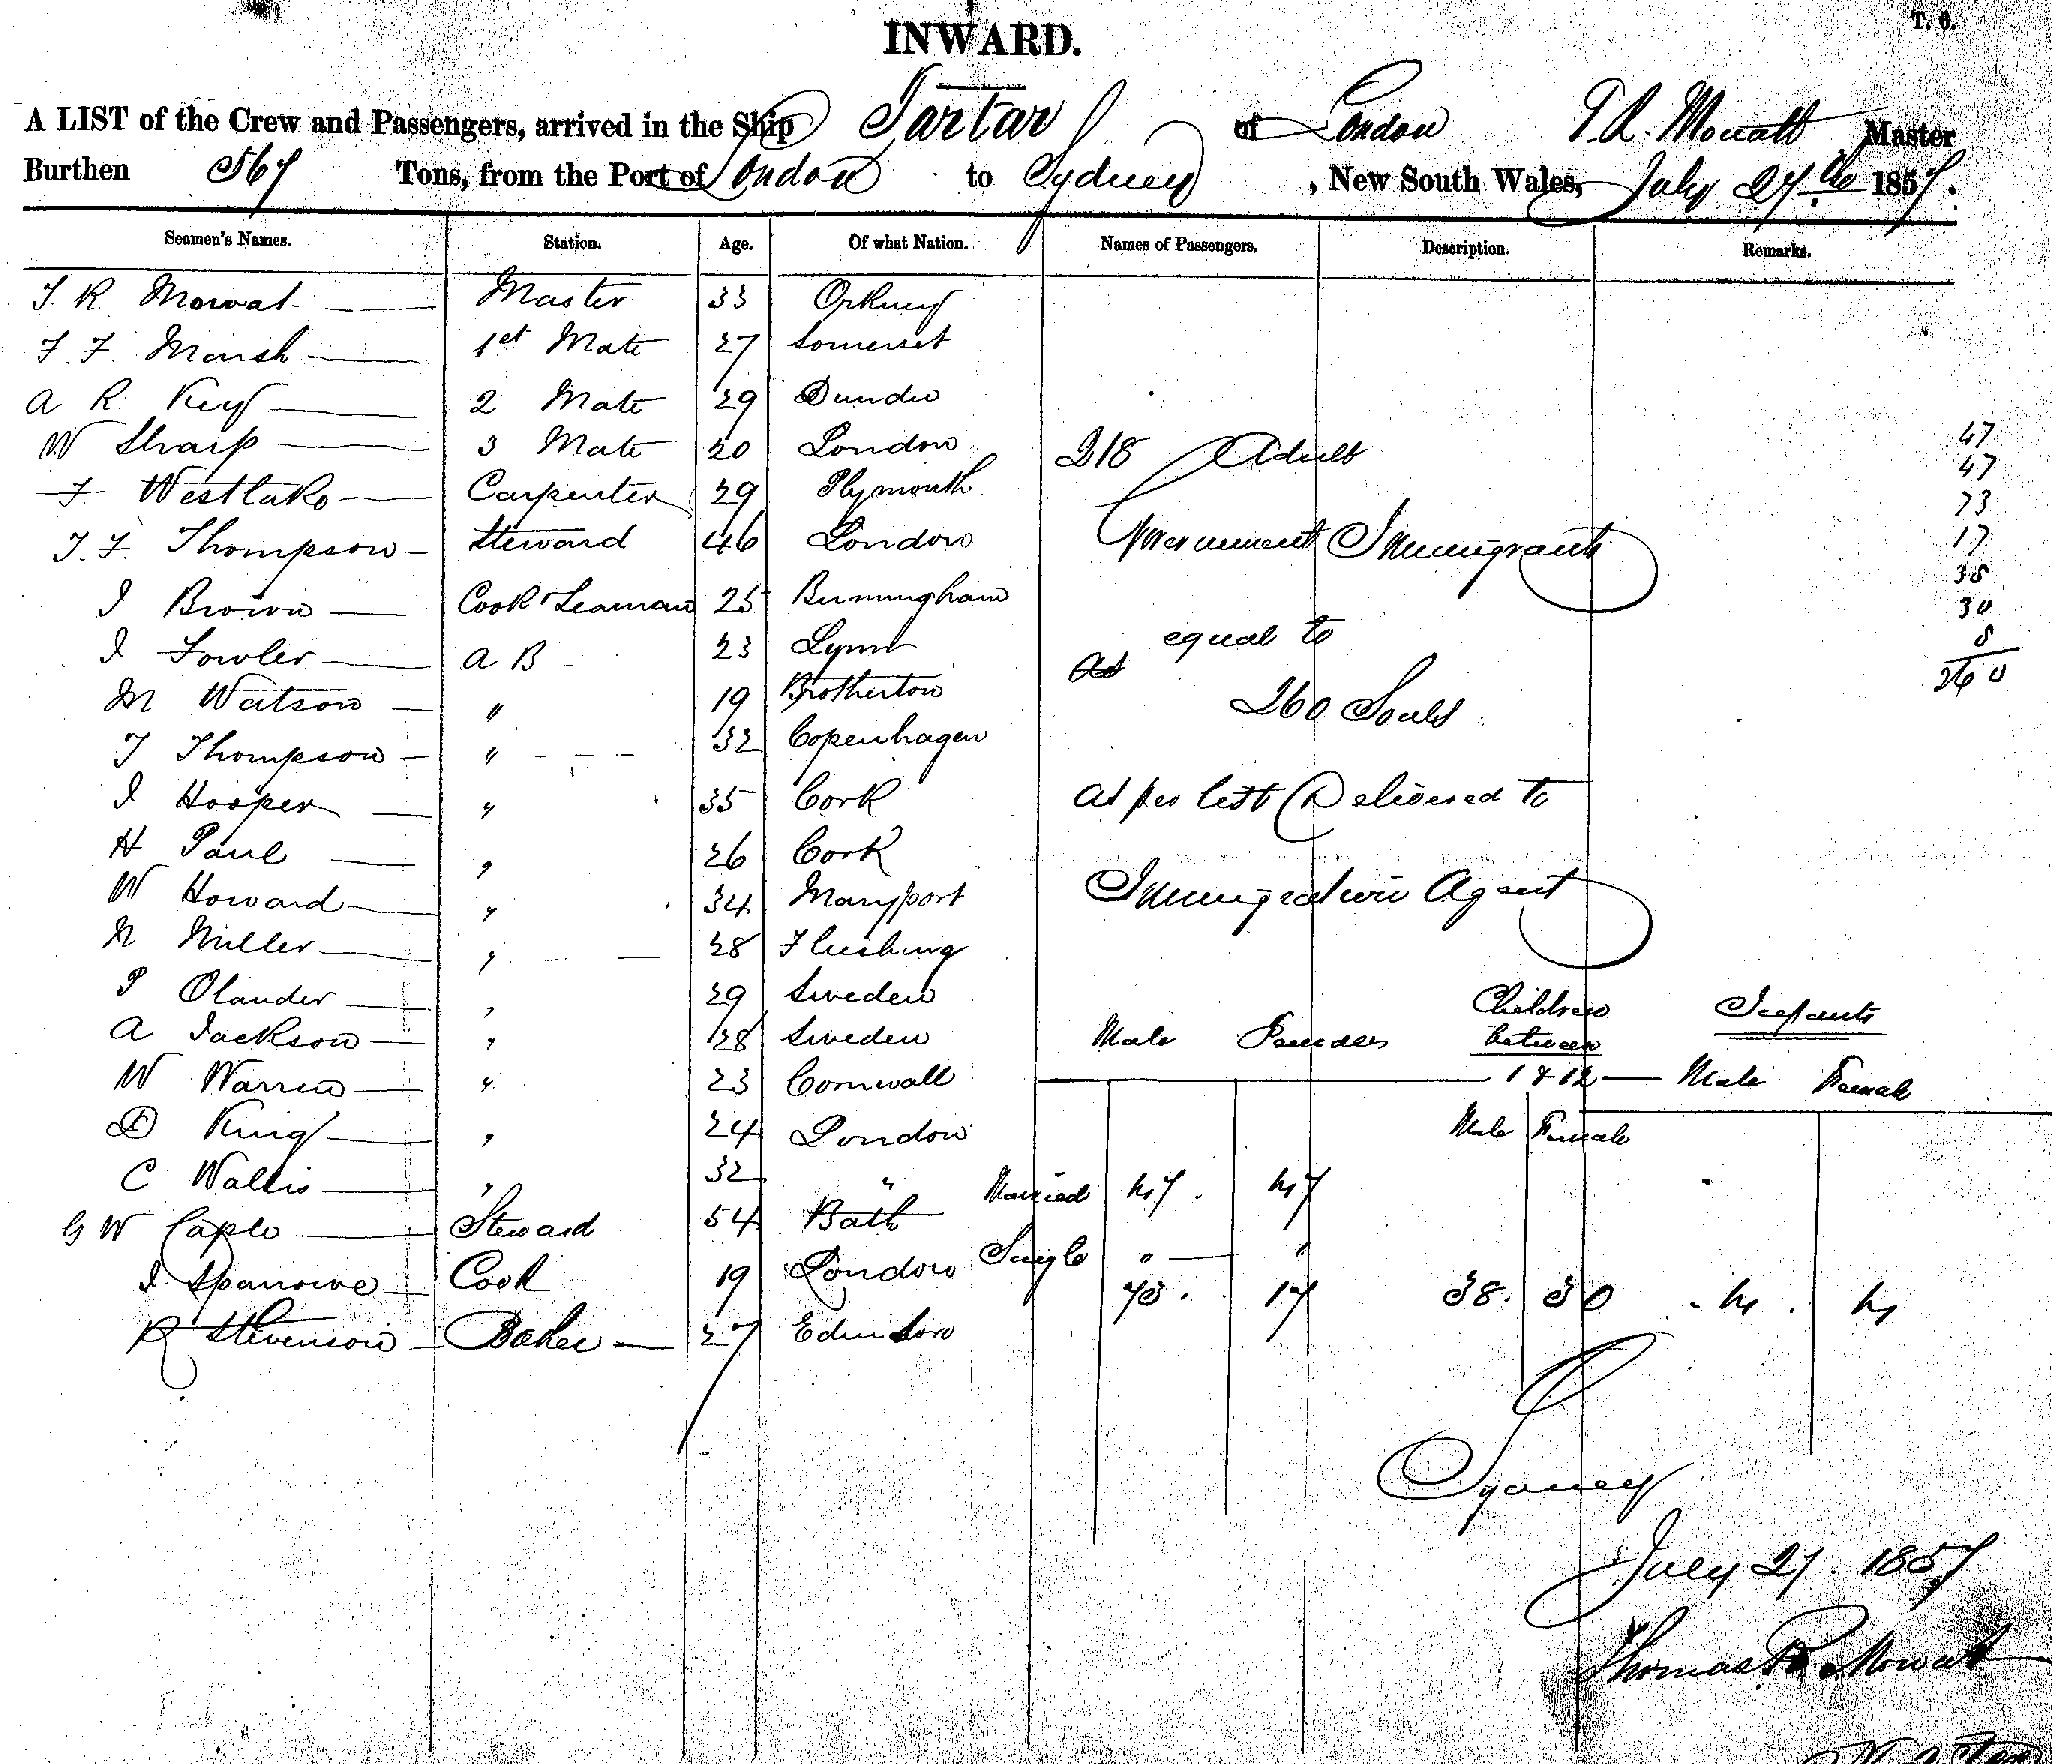 T. 6.
INWARD.
A LIST of the Crew and Passengers, arrived in the Ship Tartar of London T. R. Mowatt Master
Burthen 567 Tons, from the Port of London to Sydney, New South Wales, July 27th 1857.
Seamen's Names. Station. Age. Of what Nation. Names of Passengers. Description. Remarks.
T. R. Mowat Master 33 Orkney
F. F. Marsh 1st Mate 27 Somerset
A R Key 2 Mate 29 Dundee
W Sharp 3 Mate 20 London 218 Adult 47
F Westlake Carpenter 29 Plymouth 47
73
T. F. Thompson Steward 46 London Government Immigrants 17
38
J Brown Cook & Seaman 25 Birmingham 30
J Fowler A B 23 Lynn equal to 8
As 260
M Watson " 19 Brotherton 260 Souls
T Thompson " 32 Copenhagen
J Hooper " 35 Cork as per list Delivered to
H Paul " 26 Cork
W Howard " 34 Maryport Immigration Agent
N Miller " 28 Flushing
P Olander " 29 Sweden Children Infants
A Jackson " 28 Sweden Male Females between
W Warren " 23 Cornwall 1 & 12 Male Female
D King " 24 London Male Female
C Wallis " 32 " Married 47. 47
G W Caple Steward 54 Bath
J Sparrowe Cook 19 London Single " "
73. 17 38. 30 4. 4
R Stevenson Baker 27
Sydney
July 27. 1857
Thomas R. Mowat